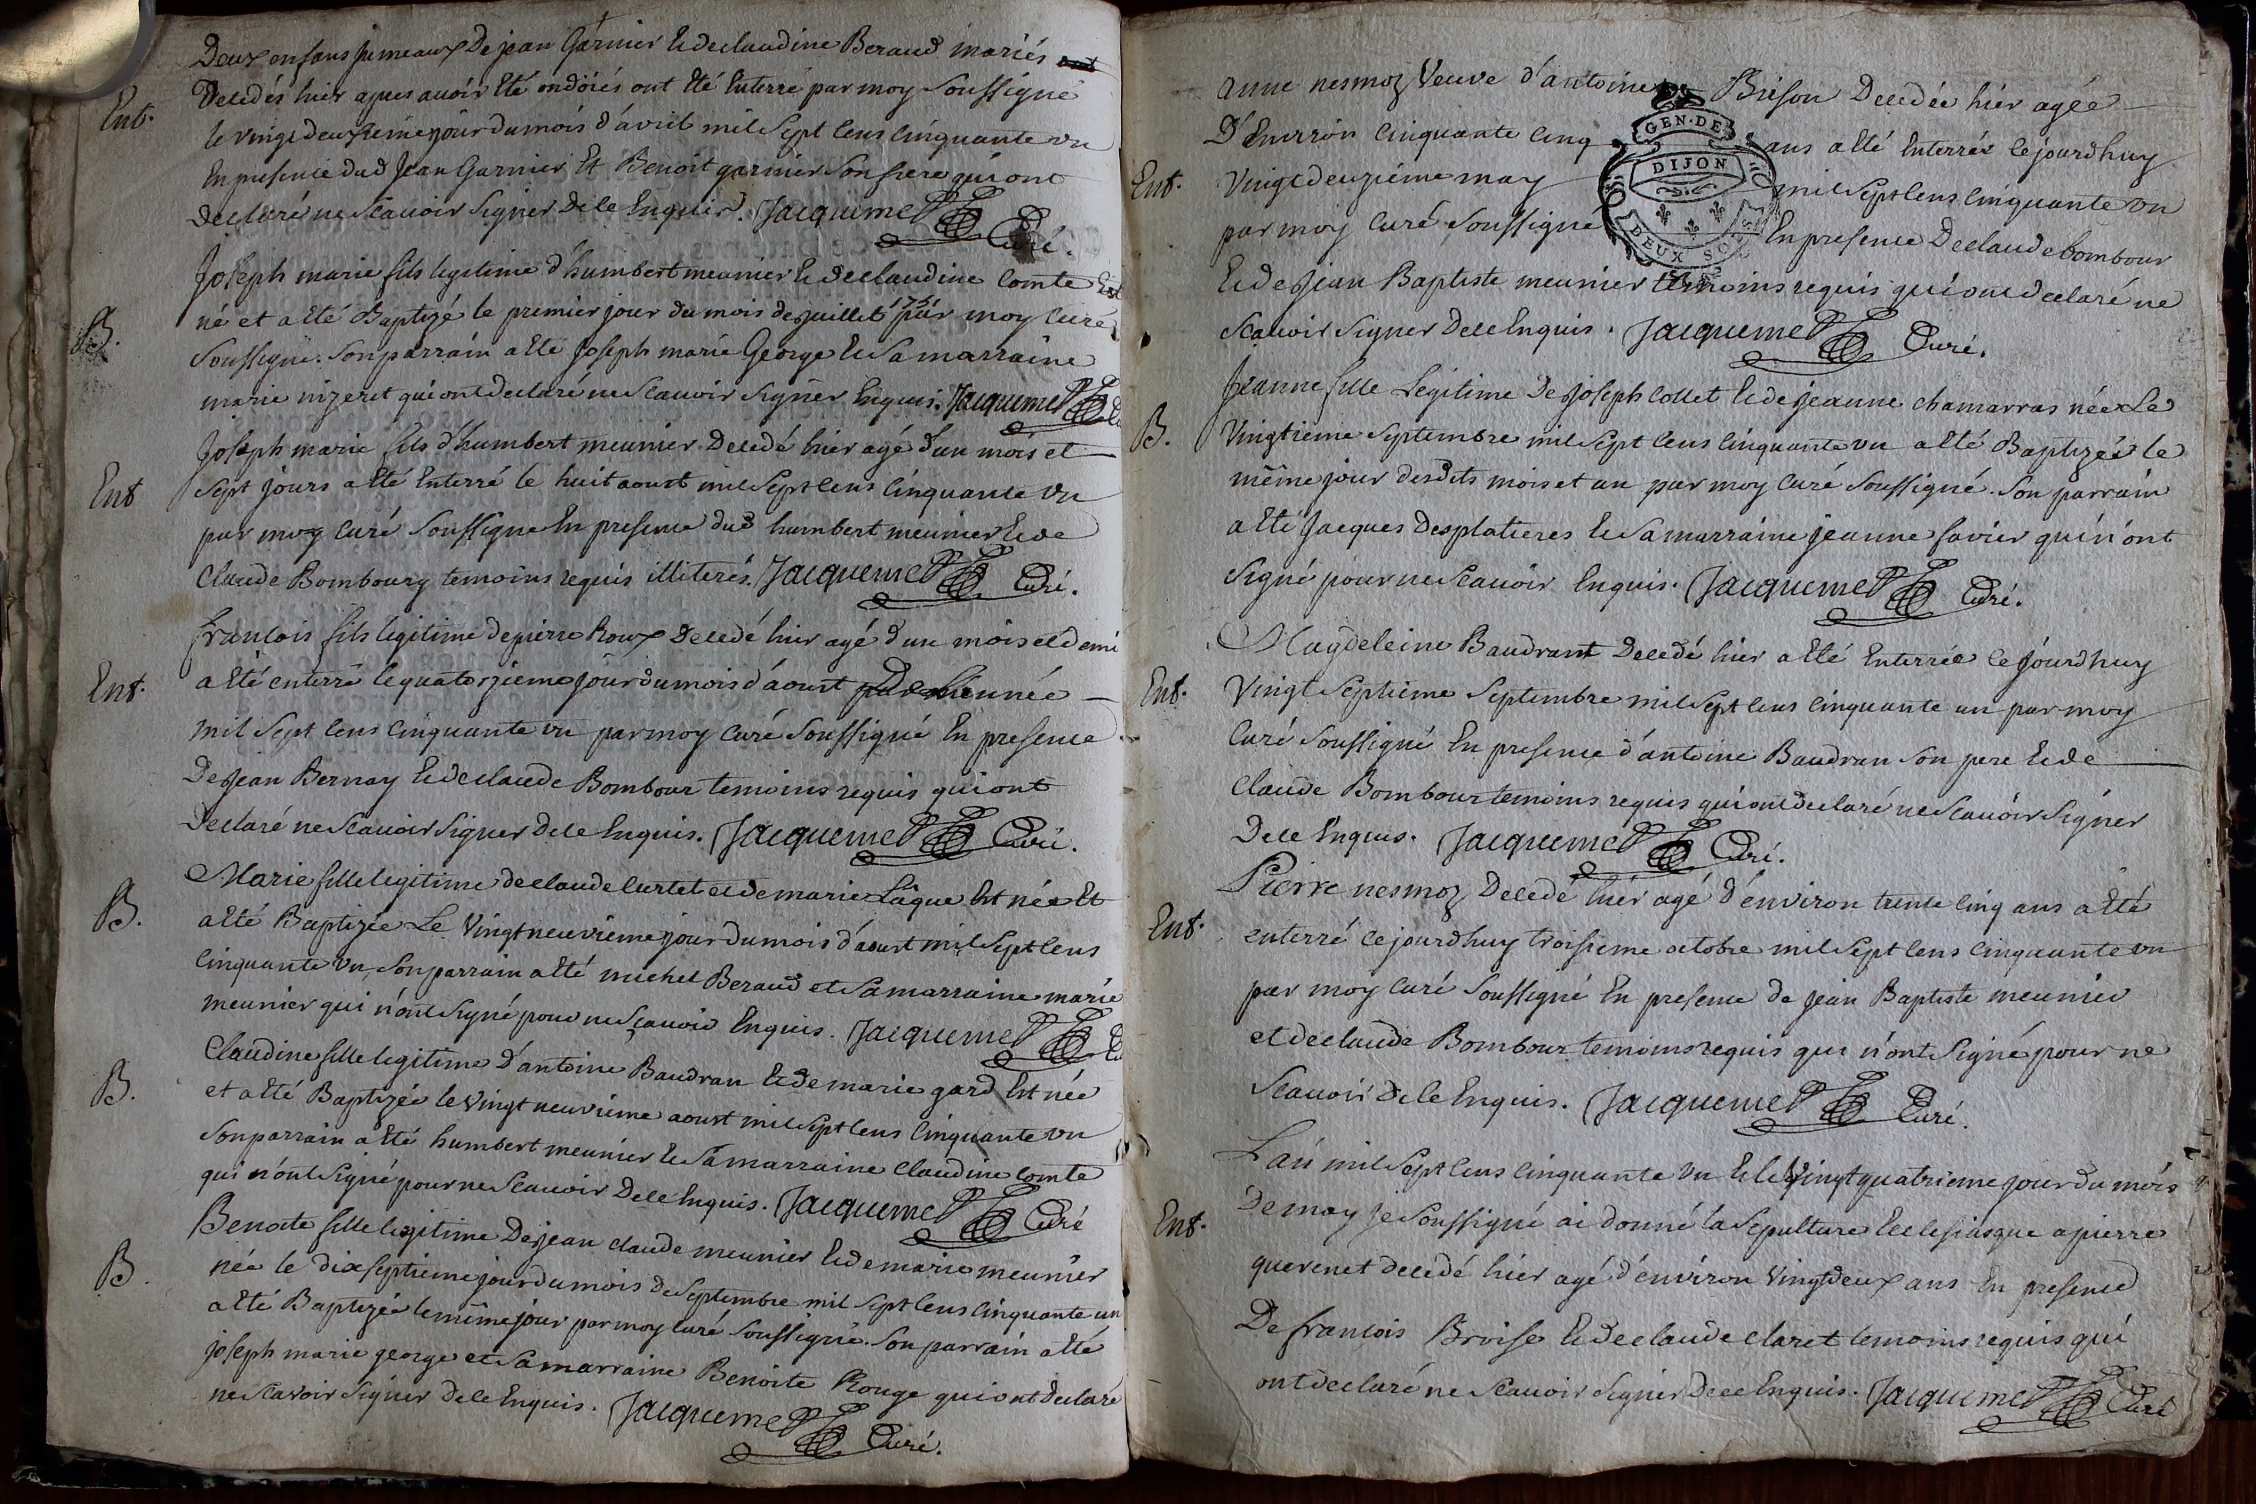 Deux enfans jumeaux De jean Garnier Et de claudine Beraud mariés
Decedés hier apres avoir Eté ondoiés ont Eté Enterré par moy Soussigné
Ent.
le vingt deuxieme jour du mois d'avril mil Sept Cens Cinquante vn
En presence dud Jean Garnier Et Benoit garnier Son frere qui ont
declaré ne Scauoir Signer De ce Enquis. Jacquemet Curé.
Joseph marie fils legitime d'humbert meunier Et de claudine Comte Est
B.
né et a Eté Baptizé le premier jour du mois de juillet 1751 par moy Curé
Soussigné. Son parrain a Eté Joseph marie George Et Sa marraine
marie nizeret qui ont declaré ne Scauoir Signer Enquis. Jacquemet
Joseph marie fils d'humbert meunier Decedé hier agé d'un mois et
Ent
Sept jours a Eté Enterré le huit aoust mil Sept Cens Cinquante vn
par moy Curé Soussigné En presence dud humbert meunier Et de
Claude Bombourg temoins requis illiterés. Jacquemet Curé.
francois fils legitime de pierre Roux Decedé hier agé d'un mois et demi
Ent.
a Eté enterré le quatorzieme jour du mois d'aoust De L'année
mil Sept Cens Cinquante vn par moy Curé Soussigné En presence
De Jean Bernay Et de claude Bombour temoins requis qui ont
Declaré ne Scauoir Signer De ce Enquis. Jacquemet Curé.
Marie fille legitime de claude Curtet et de marie Lâque Est née Et
B.
a Eté Baptizée Le Vingt neuvieme jour du mois d'aoust mil Sept Cens
Cinquante vn, Son parrain a Eté michel Beraud et Sa marraine marie
meunier qui n'ont Signé pour ne Sçauoir Enquis. Jacquemet
Claudine fille legitime d'antoine Baudran Et de marie gard Est née
B.
et a Eté Baptizée le vingt neuvieme aoust mil Sept Cens Cinquante vn
Son parrain a Eté humbert meunier Et Sa marraine Claudine Comte
qui n'ont Signé pour ne Scauoir De ce Enquis. Jacquemet Curé
Benoite fille legitime De jean claude meunier Et de marie meunier
B.
née le dix Septieme jour du mois de Septembre mil Sept Cens Cinquante un
a Eté Baptizée le même jour par moy Curé Soussigné. Son parrain a Eté
joseph marie george et Sa marraine Benoite Rouge qui ont declaré
ne Scavoir Signer De ce Enquis. Jacquemet Curé.
anne nesmoz Veuve d'antoine Brison Decedée hier agée
D'Environ Cinquante Cinq ans a Eté Enterrée ce jourdhuy
Ent.
Vingt deuzième may mil Sept Cens Cinquante vn
par moy Curé Soussigné En presence De claude Bombour
GEN. DE DIJON
DEUX SOLS
Et de Jean Baptiste meunier temoins requis qui ont declaré ne
Scauoir Signer De ce Enquis. Jacquemet Curé.
Jeanne fille Legitime De joseph Collet Et de jeanne chamarras née Le
B.
Vingtieme Septembre mil Sept Cens Cinquante vn a Eté Baptizée le
même jour desdits mois et an par moy Curé Soussigné. Son parrain
a Eté Jacques Desplatieres Et Sa marraine jeanne favier qui n'ont
Signé pour ne Scauoir Enquis. Jacquemet Curé.
Magdeleine Baudrant Decedé hier a Eté Enterrée ce jourdhuy
Ent.
Vingt Septieme Septembre mil Sept Cens Cinquante un par moy
Curé Soussigné En presence d'antoine Baudran Son pere Et de
Claude Bombour temoins requis qui ont declaré ne Scauoir Signer
De ce Enquis. Jacquemet Curé.
Pierre nesmoz Decedé hier agé d'environ trente Cinq ans a Eté
Ent.
enterré ce jourdhuy troisieme octobre mil Sept Cens Cinquante vn
par moy Curé Soussigné En presence de jean Baptiste meunier
et de claude Bombour temoins requis qui n'ont Signé pour ne
Scauoir De ce Enquis. Jacquemet Curé.
L'an mil Sept Cens Cinquante vn Et le Vingt quatrieme jour du mois
Ent.
De may je Soussigné ai donné la Sepulture Ecclesiasque a pierre
querenet decedé hier agé d'environ Vingt deux ans En presence
De francois Broise Et de claude claret temoins requis qui
ont declaré ne Scauoir Signer De ce Enquis. Jacquemet Curé